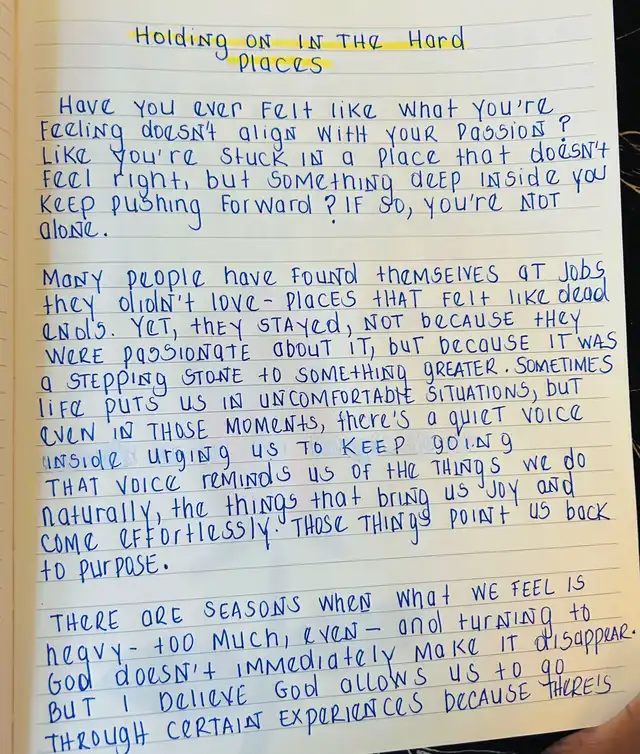 Holding on in the Hard
Places
Have you ever felt like what you're
feeling doesn't align with your passion?
Like you're stuck in a place that doesn't
feel right, but something deep inside you
keep pushing forward? If so, you're not
alone.
Many people have found themselves at jobs
they didn't love - places that felt like dead
ends. Yet, they stayed, not because they
were passionate about it, but because it was
a stepping stone to something greater. Sometimes
life puts us in uncomfortable situations, but
even in those moments, there's a quiet voice
inside urging us to keep going
That voice reminds us of the things we do
naturally, the things that bring us joy and
come effortlessly. Those things point us back
to purpose.
There are seasons when what we feel is
heavy - too much, even - and turning to
God doesn't immediately make it disappear.
But I believe God allows us to go
through certain experiences because there's